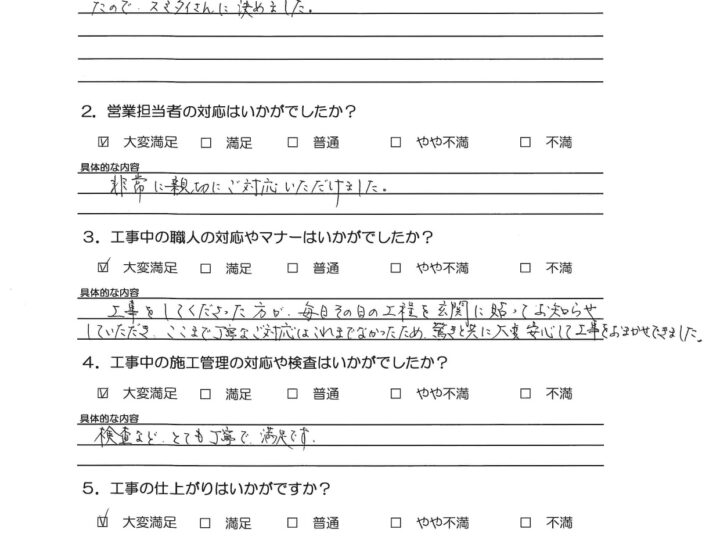 たので、スミタイさんに決めました。
2．営業担当者の対応はいかがでしたか？
☑ 大変満足 □ 満足 □ 普通 □ やや不満 □ 不満
具体的な内容
非常に親切にご対応いただけました。
3．工事中の職人の対応やマナーはいかがでしたか？
☑ 大変満足 □ 満足 □ 普通 □ やや不満 □ 不満
具体的な内容
工事をしてくださった方が、毎日その日の工程を玄関に貼ってお知らせ
していただき、ここまで丁寧なご対応はこれまでなかったため、驚きと共に大変安心して工事をおまかせできました。
4．工事中の施工管理の対応や検査はいかがでしたか？
☑ 大変満足 □ 満足 □ 普通 □ やや不満 □ 不満
具体的な内容
検査など、とても丁寧で、満足です。
5．工事の仕上がりはいかがですか？
☑ 大変満足 □ 満足 □ 普通 □ やや不満 □ 不満